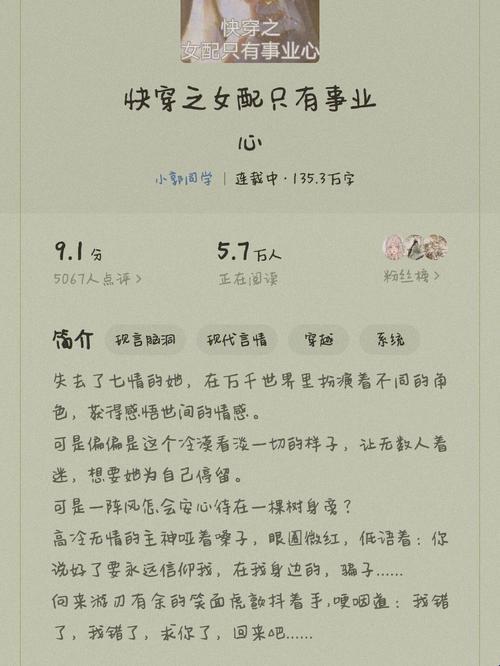 快穿之
女配只有事业心
快穿之女配只有事业
心
小郭同学 | 连载中·135.3万字
9.1分
5.7万人
5067人点评>
正在阅读
粉丝榜>
简介 现言脑洞 现代言情 穿越 系统
失去了七情的她，在万千世界里扮演着不同的角
色，获得感悟世间的情感。
可是偏偏是这个冷漠看淡一切的样子，让无数人着
迷，想要她为自己停留。
可是一阵风怎会安心待在一棵树身旁？
高冷无情的主神哑着嗓子，眼圈微红，低语着：你
说好了要永远信仰我，在我身边的，骗子……
向来游刃有余的笑面虎颤抖着手，哽咽道：我错
了，我错了，求你了，回来吧……